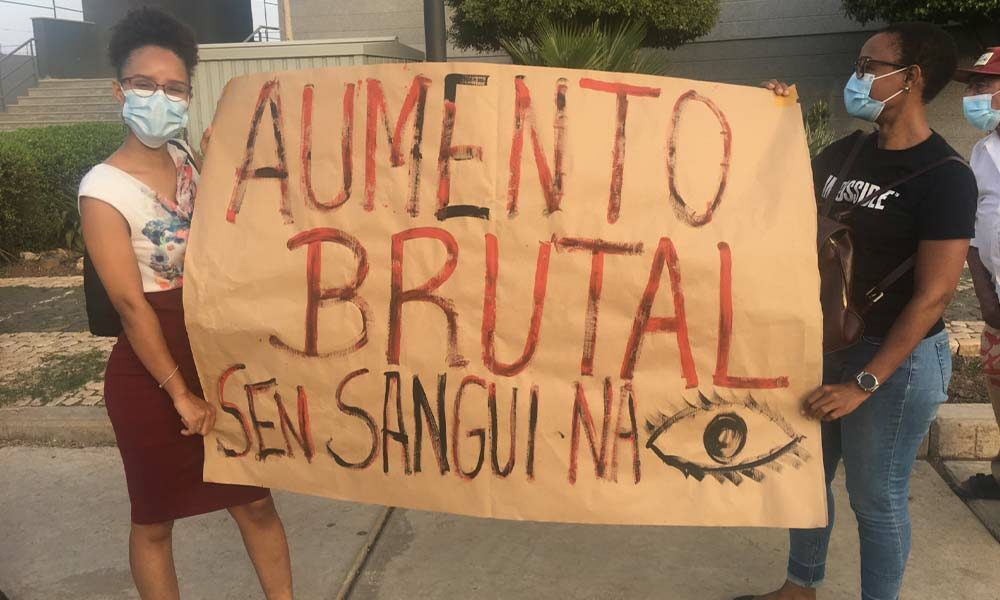 AUMENTO
BRUTAL
SEN SANGUI NA